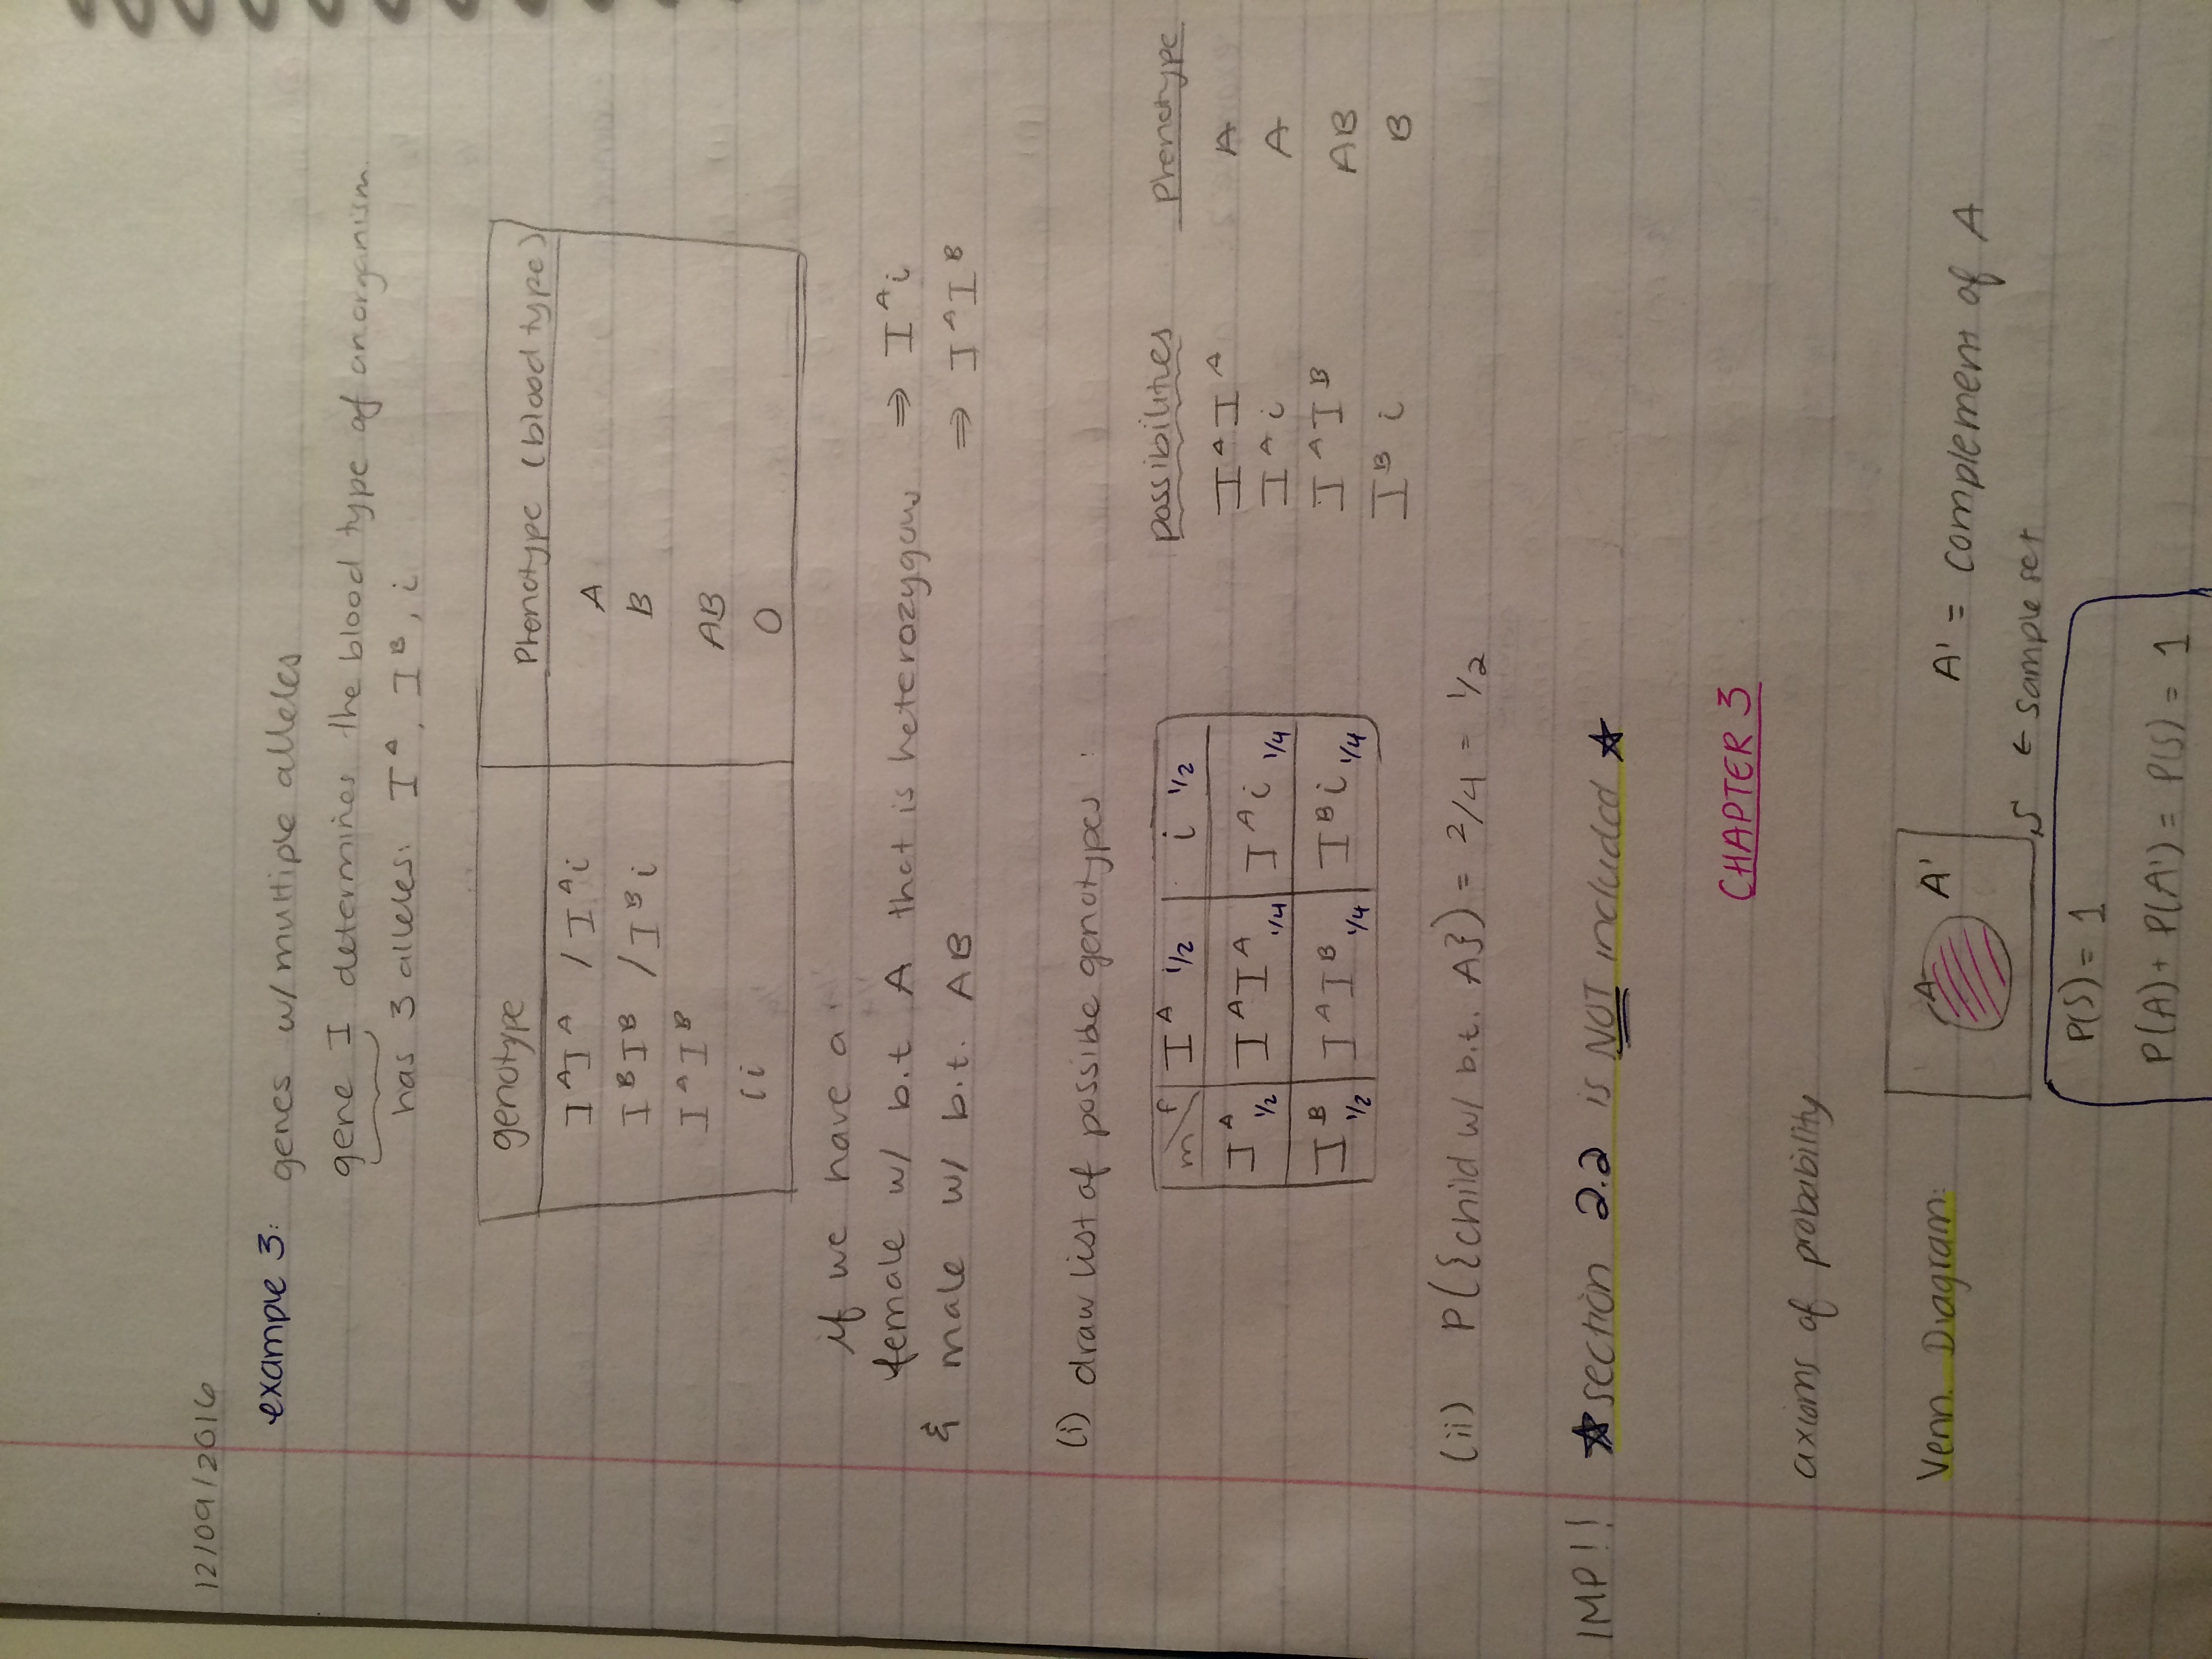 12/09/2016
example 3: genes w/ multiple alleles
gene I determines the blood type of an organism
has 3 alleles: I^A, I^B, i
genotype Phenotype (blood type)
I^A I^A / I^A i A
I^B I^B / I^B i B
I^A I^B AB
ii O
if we have a:
female w/ b.t A that is heterozygous ⇒ I^A i
& male w/ b.t. AB ⇒ I^A I^B
(i) draw list of possible genotypes:
m\f I^A 1/2 i 1/2 possibilities Phenotype
I^A 1/2 I^A I^A 1/4 I^A i 1/4 I^A I^A A
I^B 1/2 I^A I^B 1/4 I^B i 1/4 I^A i A
I^A I^B AB
I^B i B
(ii) P({child w/ b.t. A}) = 2/4 = 1/2
IMP!! ☆ section 2.2 is NOT included ☆
CHAPTER 3
axioms of probability
Venn. Diagram: A A' A' = complement of A
S ← sample set
P(S) = 1
P(A) + P(A') = P(S) = 1